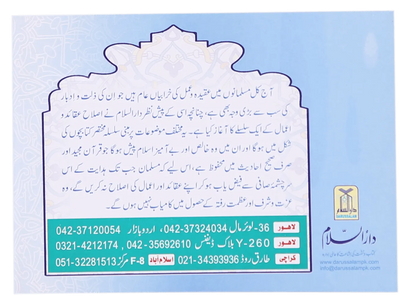 آج کل مسلمانوں میں عقیدہ و عمل کی خرابیاں عام ہیں جو ان کی ذلت و ادبار
کی سب سے بڑی وجہ بھی ہے، چنانچہ اسی کے پیش نظر دارالسلام نے اصلاح عقائد و
اعمال کے ایک سلسلے کا آغاز کیا ہے۔ یہ مختلف موضوعات پر مبنی سلسلہ مختصر کتابچوں کی
شکل میں ہوگا اور ان میں وہ خالص اور بے آمیز اسلام پیش ہوگا جو قرآن مجید اور
صرف صحیح احادیث میں محفوظ ہے، اس لیے کہ مسلمان جب تک ہدایت کے اس
سرچشمۂ صافی سے فیض یاب ہو کر اپنے عقائد اور اعمال کی اصلاح نہ کریں گے، وہ
عزت و شرف اور عظمت رفتہ کے حصول میں کامیاب نہیں ہوں گے۔
لاہور 36-لوئر مال 042-37324034، اردو بازار 042-37120054
لاہور Y-260 بلاک ڈیفنس 042-35692610، 0321-4212174
کراچی طارق روڈ 021-34393936 اسلام آباد F-8 مرکز 051-32281513
دارالسلام
DARUSSALAM
دارالسلام